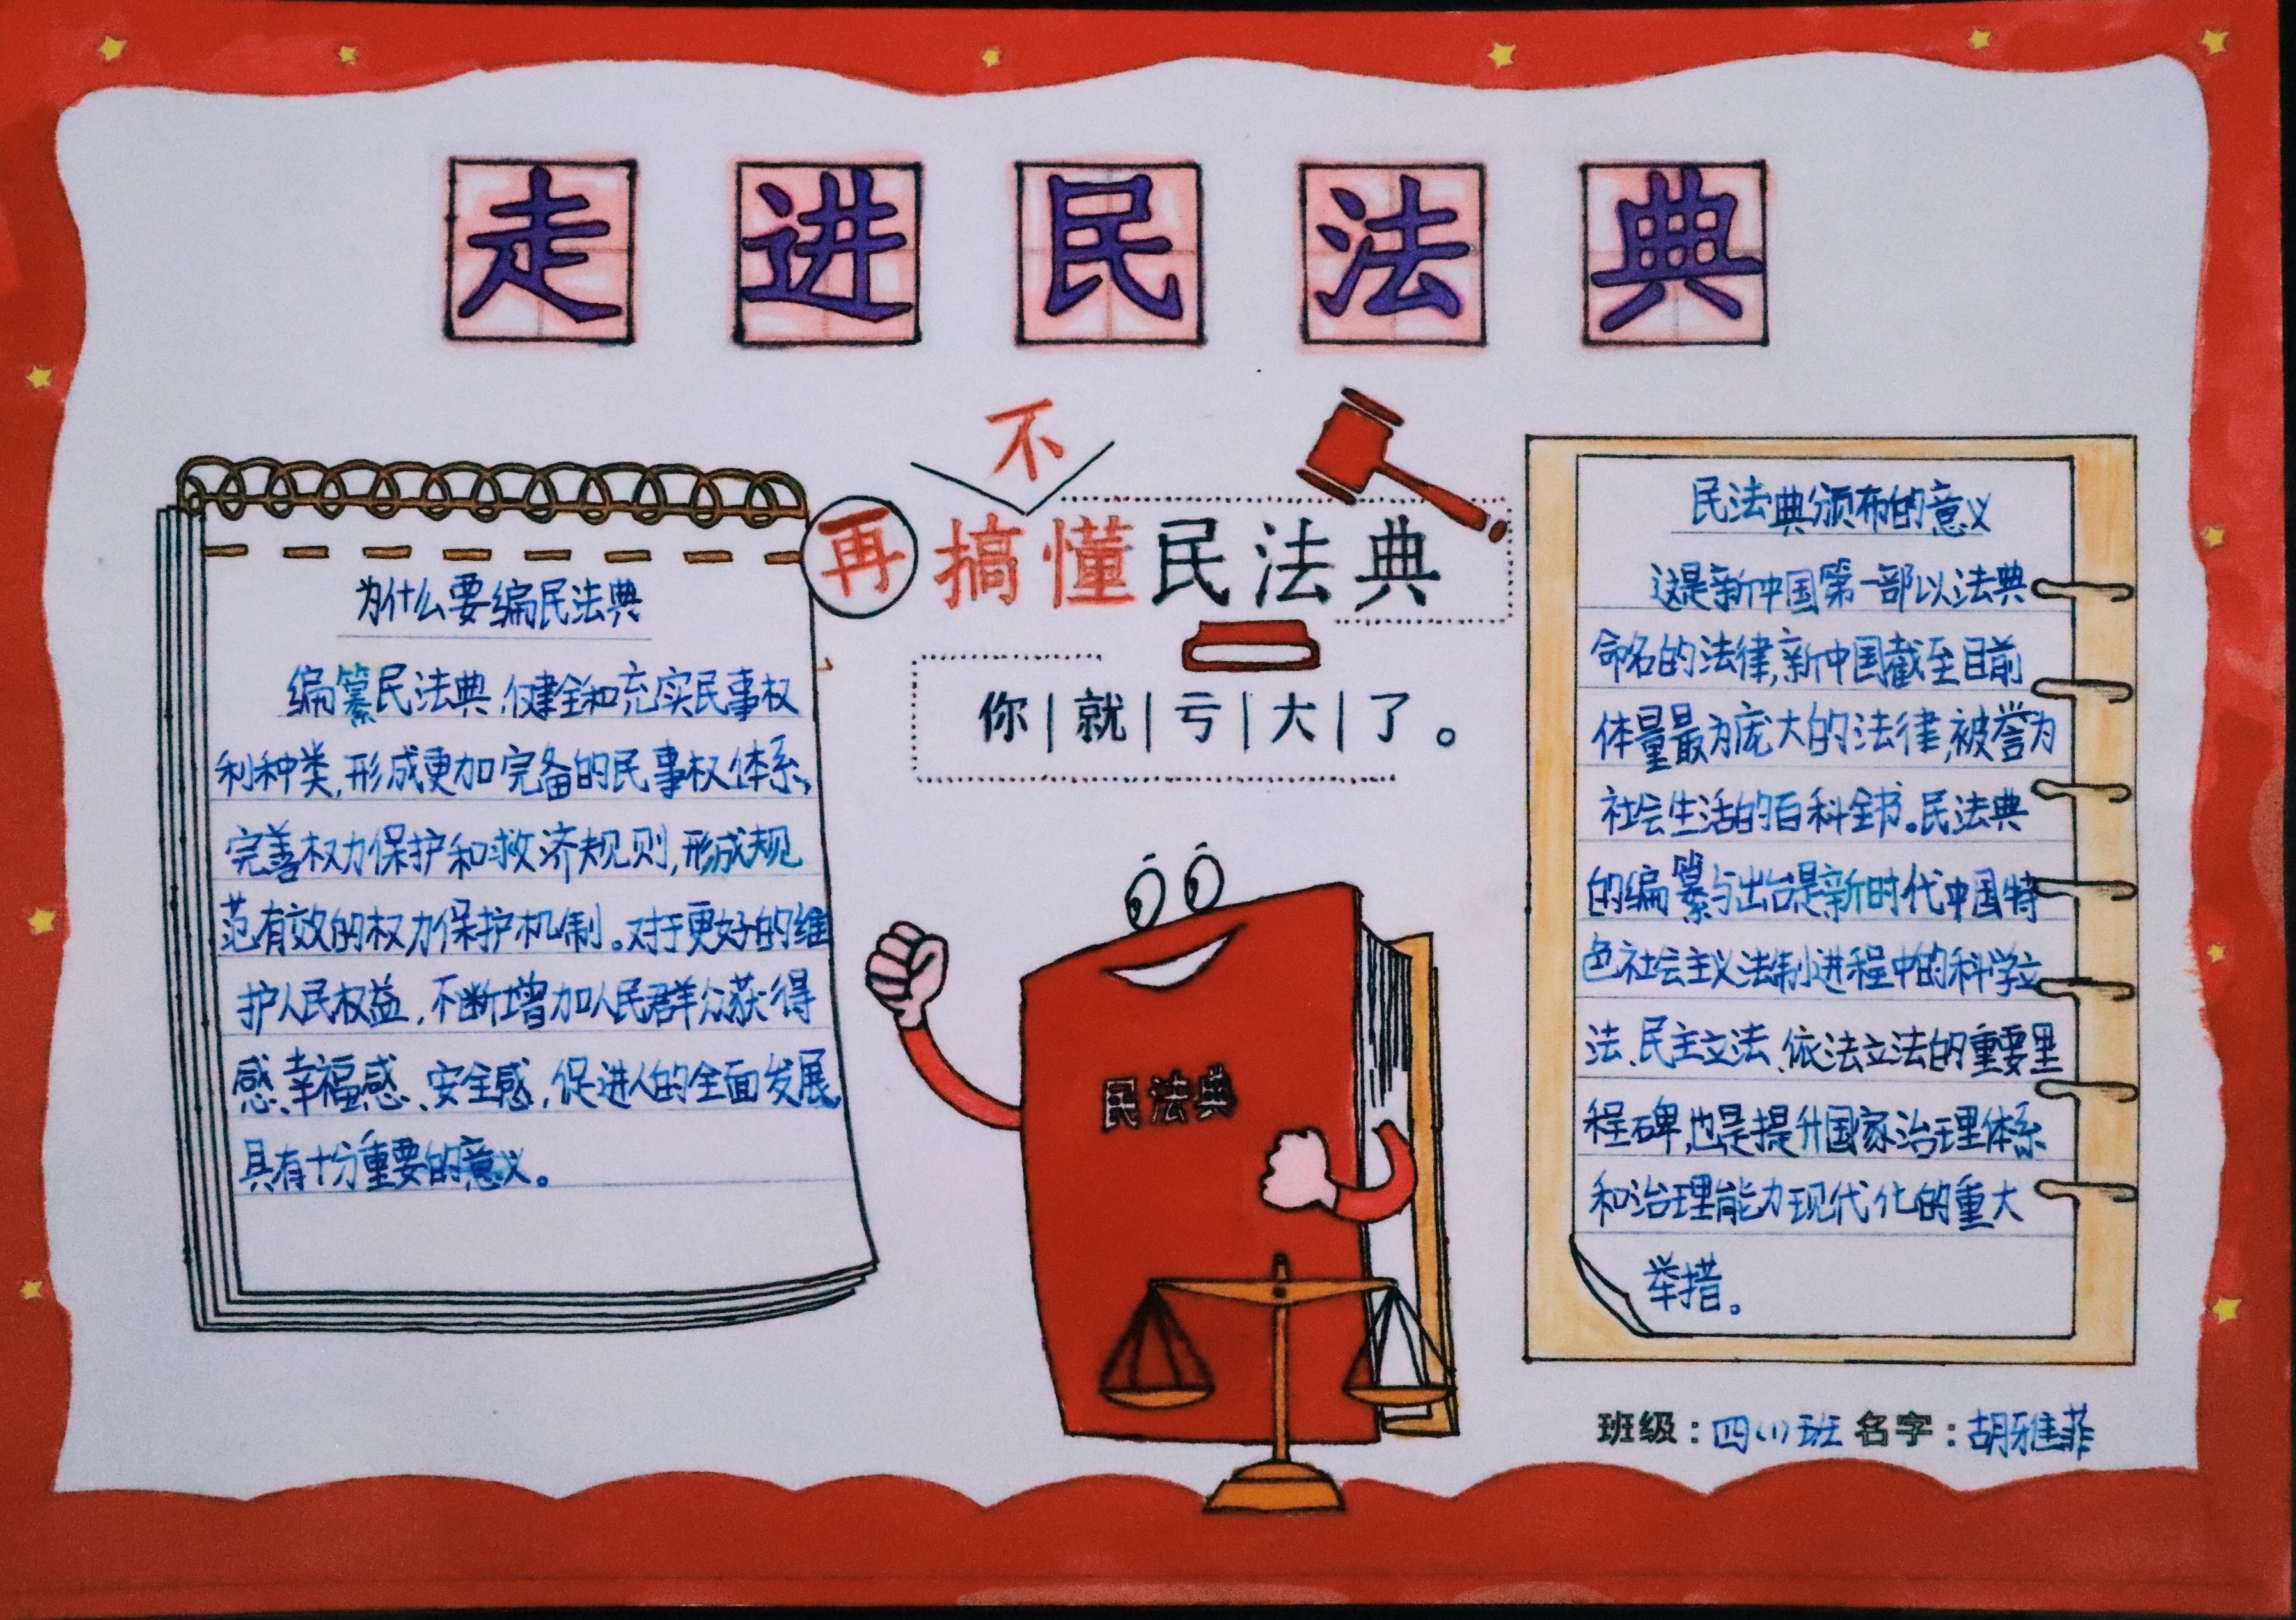 走进民法典
不
再搞懂民法典
你|就|亏|大|了。
为什么要编民法典
编纂民法典,健全和充实民事权
利种类,形成更加完备的民事权体系,
完善权力保护和救济规则,形成规
范有效的权力保护机制。对于更好的维
护人民权益,不断增加人民群众获得
感、幸福感、安全感,促进人的全面发展
具有十分重要的意义。
民法典颁布的意义
这是新中国第一部以法典
命名的法律,新中国截至目前
体量最为庞大的法律,被誉为
社会生活的百科全书。民法典
的编纂与出台是新时代中国特
色社会主义法制进程中的科学立
法、民主立法、依法立法的重要里
程碑,也是提升国家治理体系
和治理能力现代化的重大
举措。
民法典
班级:四(1)班 名字:胡雅菲